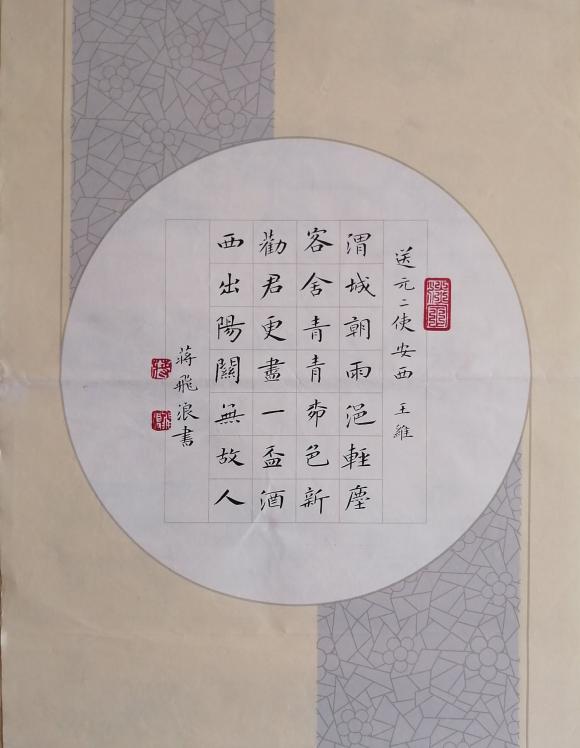 送元二使安西 王維
渭城朝雨浥輕塵
客舍青青柳色新
勸君更盡一盃酒
西出陽關無故人
蔣飛浪書